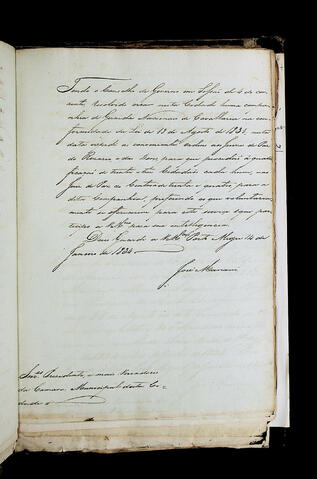 Tendo o Conselho de Governo em Sessão de 4 do cor-
rente, resolvido crear nesta Cidade huma compa-
nhia de Guardas Nacionaes de Cavallaria na con-
formidade da Lei de 18 de Agosto de 1831, nesta
data expedi as convenientes ordens aos Juizes de Paz
do Rosario e das Dores para que procedão á quali-
ficação de trinta e tres Cidadãos cada hum, e ao
Juiz de Paz de trinta e quatro, para a
dita Companhia, preferindo os que voluntaria-
mente se oferecerem para este serviço o que par-
ticipo a VMces para sua intelligencia.
Deos Guarde a VMces Porto Alegre 14 de
Janeiro de 1834
José Mariani
Snrs. Presidente, e mais Vereadores
da Camara Municipal desta Ci-
dade